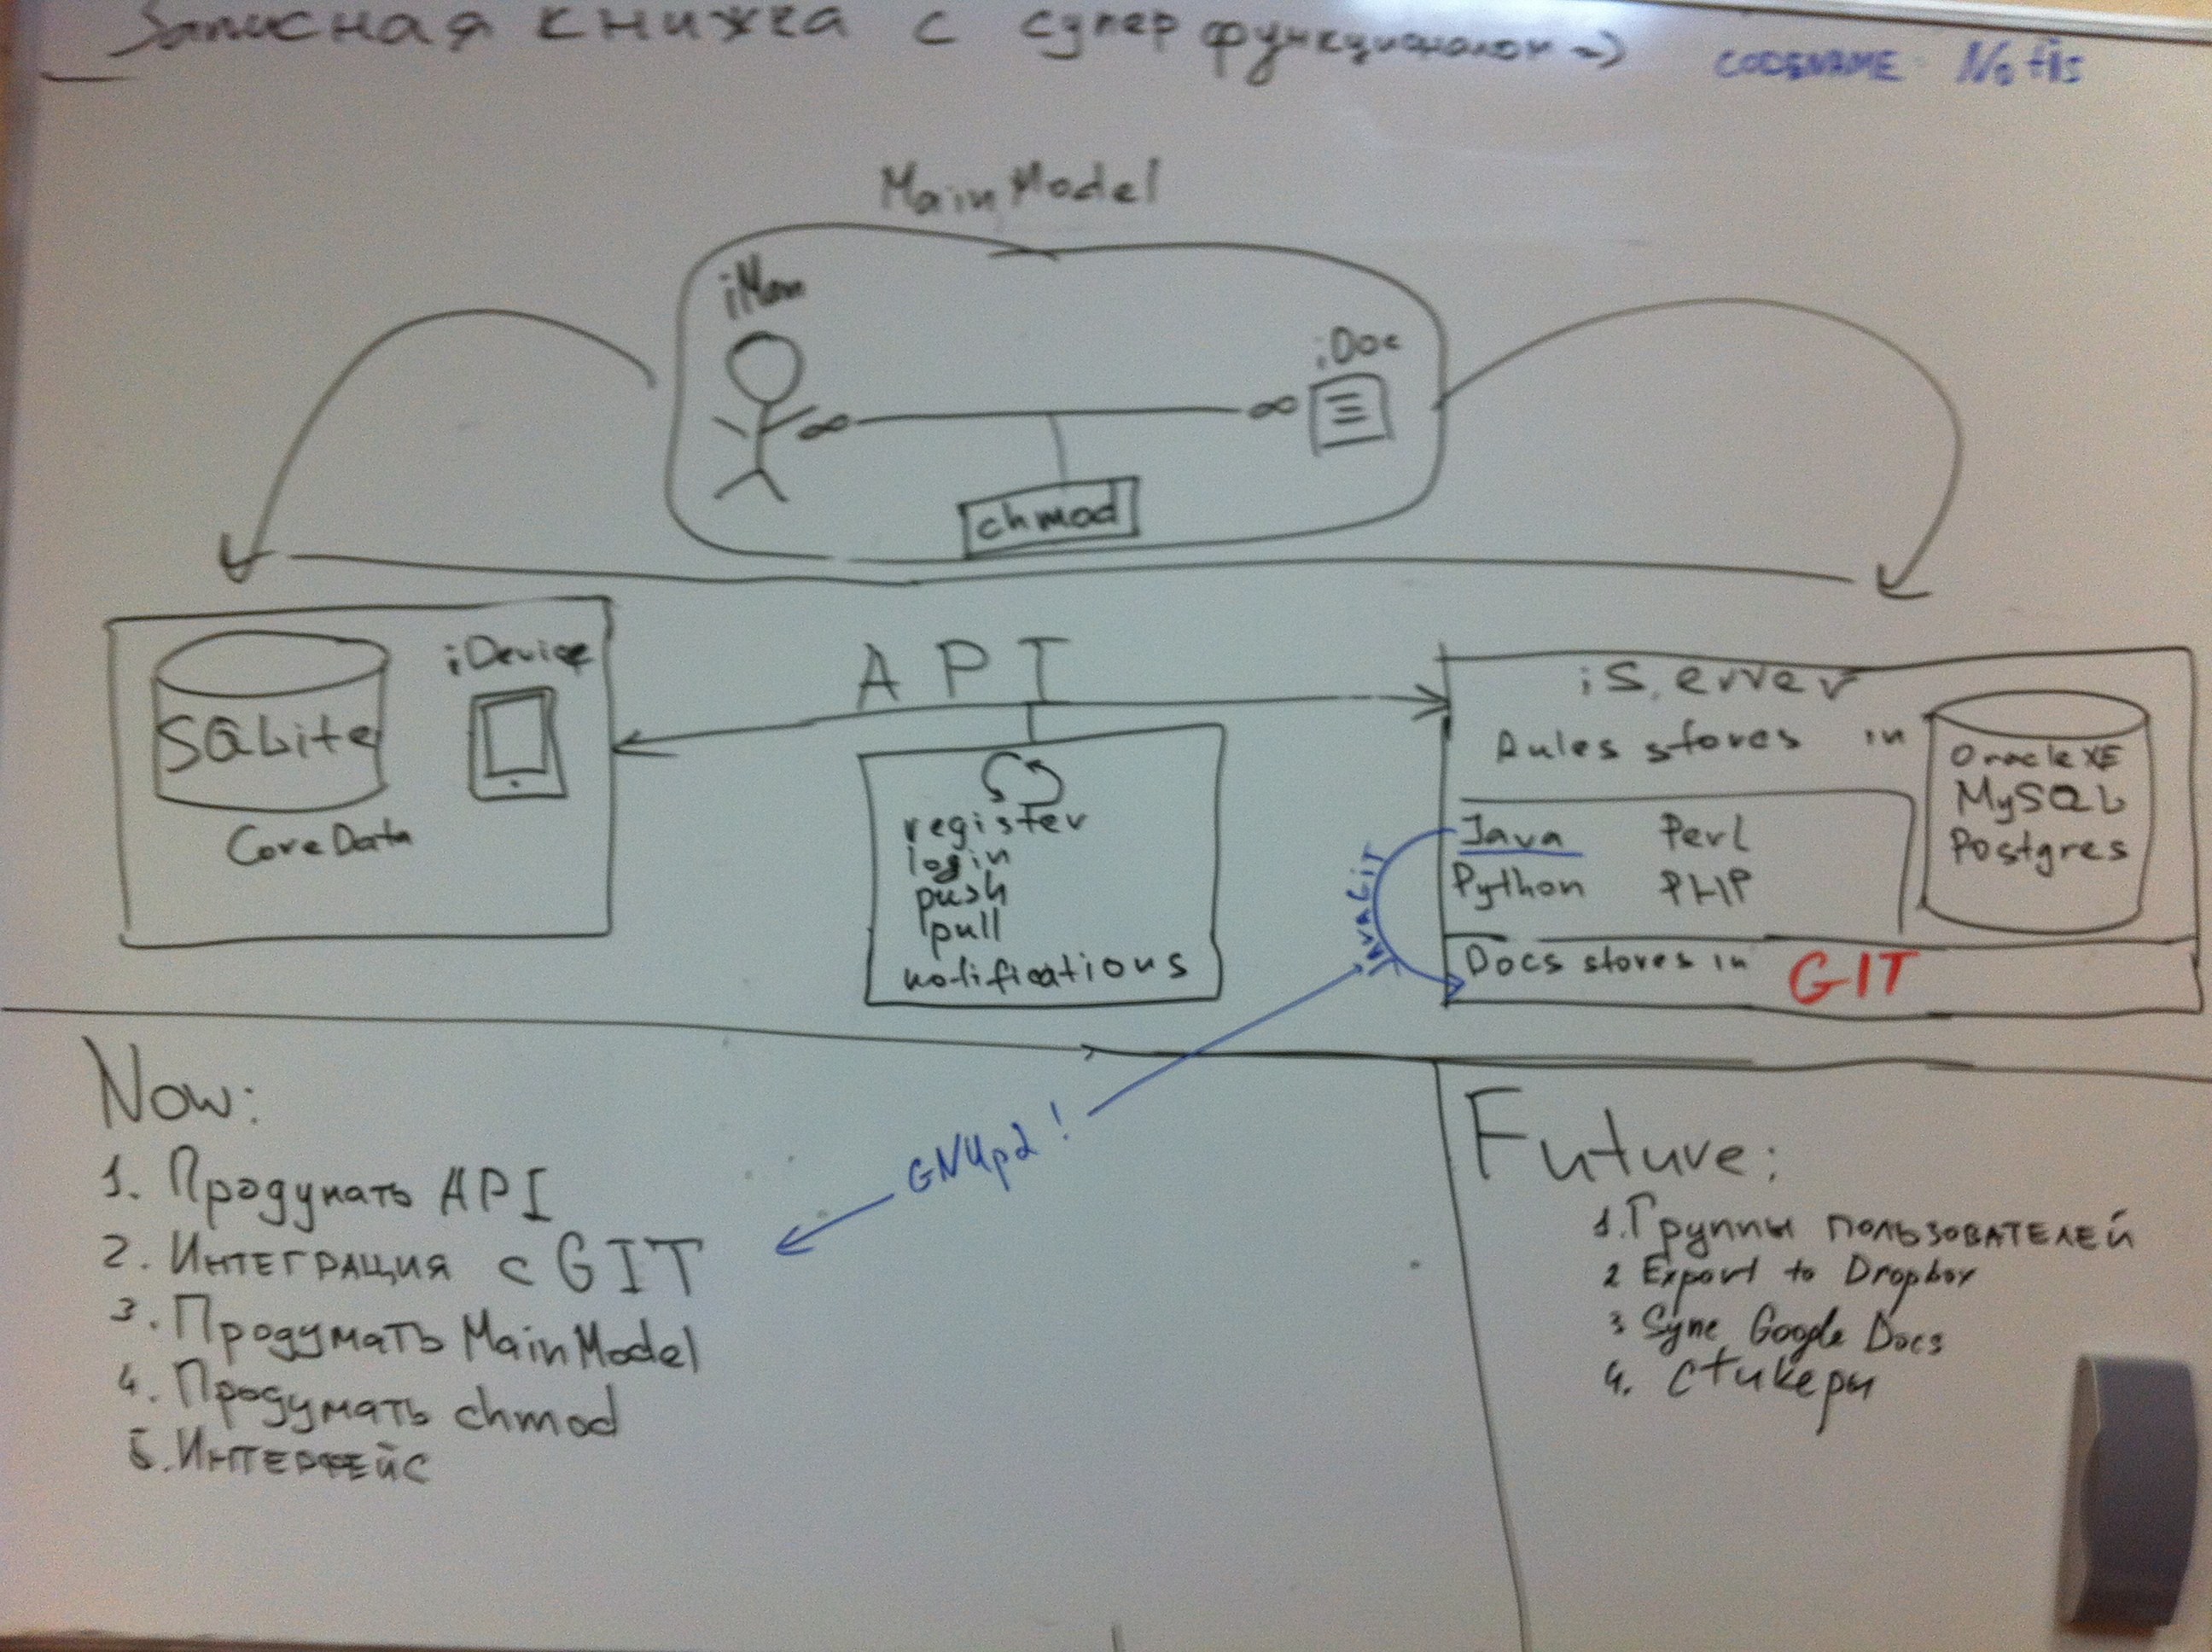 Записная книжка с супер функционалом →
CODENAME Notis
MainModel
iMan
iDoc
∞ ∞
chmod
SQLite
iDevice
CoreData
API
register
login
push
pull
notifications
iServer
Rules stores in
OracleXE
MySQL
Postgres
Java Perl
Python PHP
JavaGIT
Docs stores in GIT
GNUpd !
Now:
1. Продумать API
2. Интеграция с GIT
3. Продумать MainModel
4. Продумать chmod
5. Интерфейс
Future:
1. Группы пользователей
2 Export to Dropbox
3 Sync Google Docs
4. Стикеры